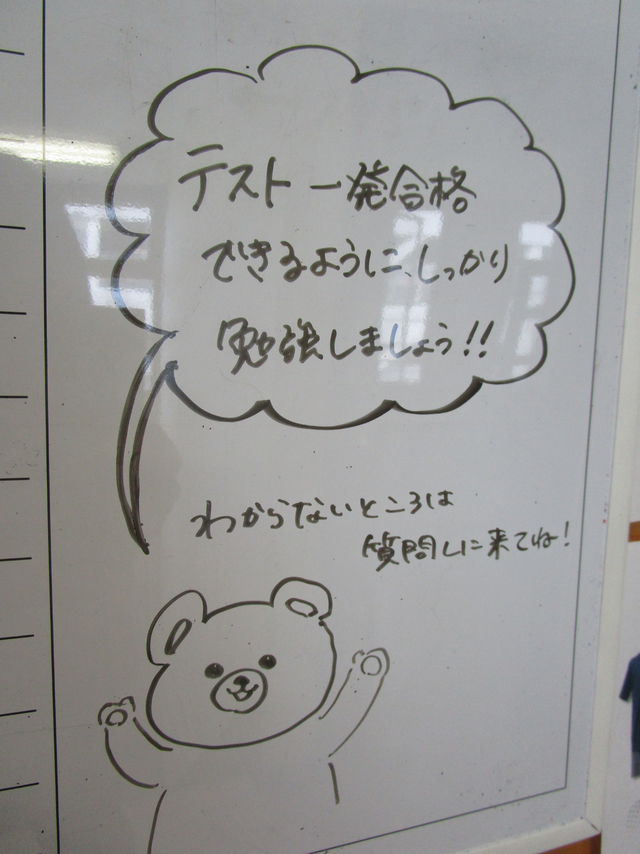 テスト一発合格
できるように、しっかり
勉強しましょう!!
わからないところは
質問しに来てね!